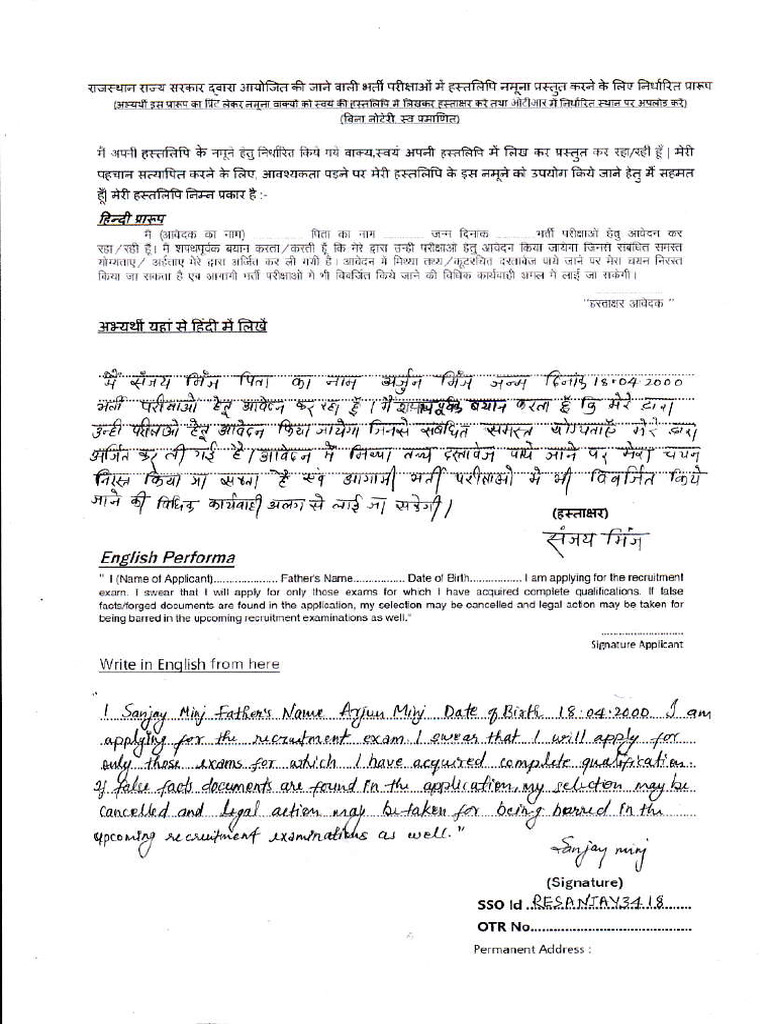 राजस्थान राज्य सरकार द्वारा आयोजित की जाने वाली भर्ती परीक्षाओं में हस्तलिपि नमूना प्रस्तुत करने के लिए निर्धारित प्रारूप
(अभ्यर्थी इस प्रारूप का प्रिंट लेकर नमूना वाक्यों को स्वयं की हस्तलिपि में लिखकर हस्ताक्षर करे तथा ओटीआर में निर्धारित स्थान पर अपलोड करें)
(बिना नोटेरी, स्व प्रमाणित)
मैं अपनी हस्तलिपि के नमूने हेतु निर्धारित किये गये वाक्य,स्वयं अपनी हस्तलिपि में लिख कर प्रस्तुत कर रहा/रही हूँ| मेरी
पहचान सत्यापित करने के लिए, आवश्यकता पड़ने पर मेरी हस्तलिपि के इस नमूने को उपयोग किये जाने हेतु मैं सहमत
हूँ| मेरी हस्तलिपि निम्न प्रकार है :-
हिन्दी प्रारूप
मैं (आवेदक का नाम) .................... पिता का नाम .................... जन्म दिनांक .............. भर्ती परीक्षाओं हेतु आवेदन कर
रहा/रही हूँ। मैं शपथपूर्वक बयान करता/करती हूँ कि मेरे द्वारा उन्ही परीक्षाओं हेतु आवेदन किया जायेगा जिनसे संबंधित समस्त
योग्यताए/ अर्हताए मेरे द्वारा अर्जित कर ली गयी है। आवेदन में मिथ्या तथ्य/कूटरचित दस्तावेज पाये जाने पर मेरा चयन निरस्त
किया जा सकता है एवं आगामी भर्ती परीक्षाओं में भी विवर्जित किये जाने की विधिक कार्यवाही अमल में लाई जा सकेगी।
"हस्ताक्षर आवेदक "
अभ्यर्थी यहां से हिंदी में लिखें
मैं संजय मिंज पिता का नाम अर्जुन मिंज जन्म दिनांक 18.04.2000
भर्ती परीक्षाओं हेतू आवेदन कर रहा हूँ। मैं शपथपूर्वक बयान करता हूँ कि मेरे द्वारा
उन्ही परीक्षाओं हेतू आवेदन किया जायेगा जिनसे संबंधित समस्त योग्यताएँ मेरे द्वारा
अर्जित कर ली गई है। आवेदन में मिथ्या तथ्य दस्तावेज पाये जाने पर मेरा चयन
निरस्त किया जा सकता है एवं आगामी भर्ती परीक्षाओं में भी विवर्जित किये
जाने की विधिक कार्यवाही अलग से लाई जा सकेगी।
(हस्ताक्षर)
संजय मिंज
English Performa
" I (Name of Applicant)..................... Father's Name................ Date of Birth................ I am applying for the recruitment
exam. I swear that I will apply for only those exams for which I have acquired complete qualifications. If false
facts/forged documents are found in the application, my selection may be cancelled and legal action may be taken for
being barred in the upcoming recruitment examinations as well."
Signature Applicant
Write in English from here
"I Sanjay Minj Father's Name Arjun Minj Date of Birth 18.04.2000 I am
applying for the recruitment exam. I swear that I will apply for
only those exams for which I have acquired complete qualification.
If false facts documents are found in the application, my selection may be
cancelled and legal action may be taken for being barred in the
upcoming recruitment examinations as well."
Sanjay minj
(Signature)
SSO Id RESANJAY3418
OTR No.
Permanent Address :